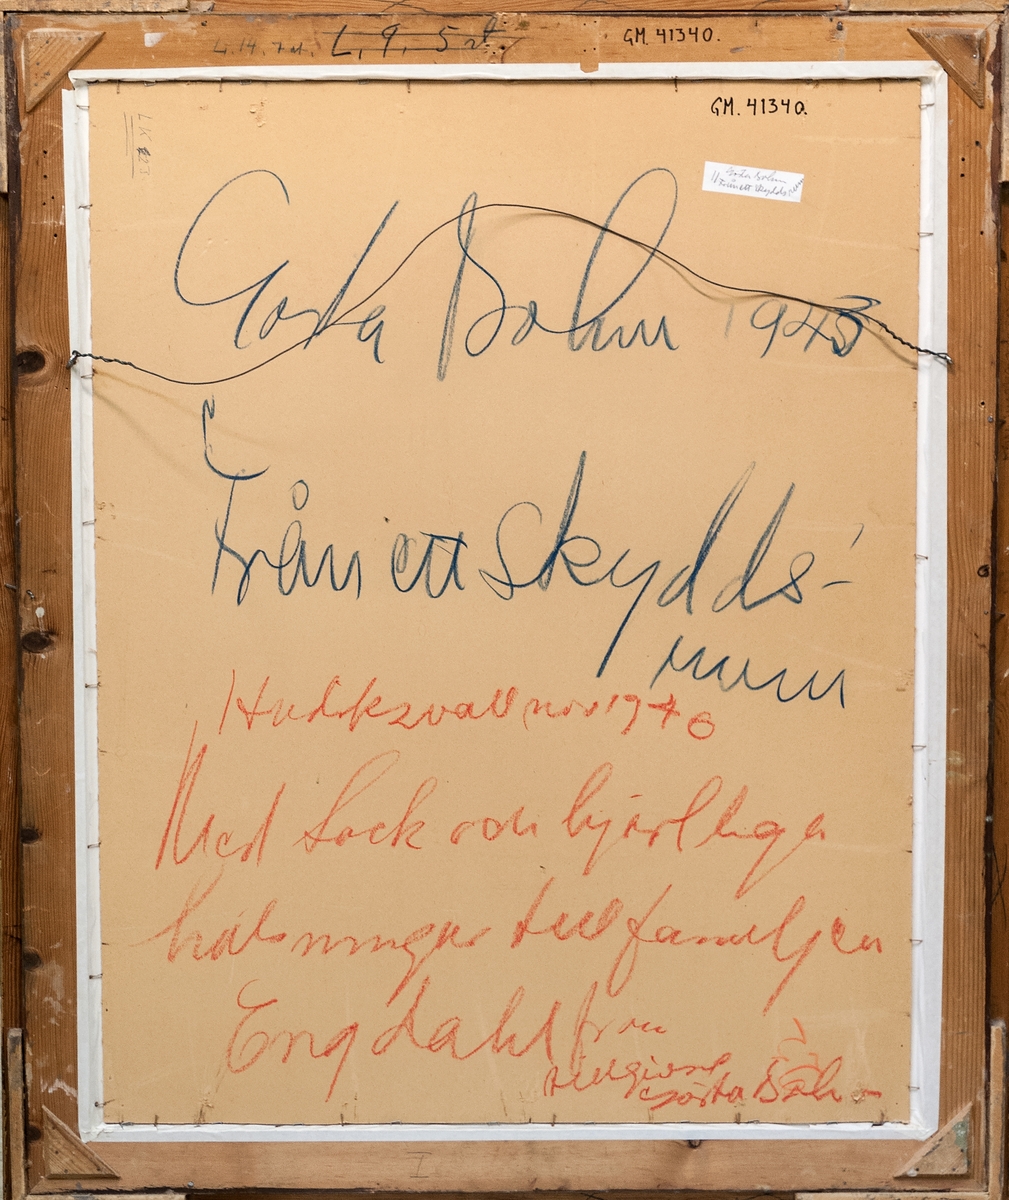 L. 9. 5 st
GM. 41340.
GM. 41340.
Gösta Bohm
Från ett skydds-
Gösta Bohm 1943
Från ett skydds-
rum
Hudiksvall nov 1946
Med tack och hjärtliga
hälsningar till familjen
Engdahl från
tillgivne
Gösta Bohm
I